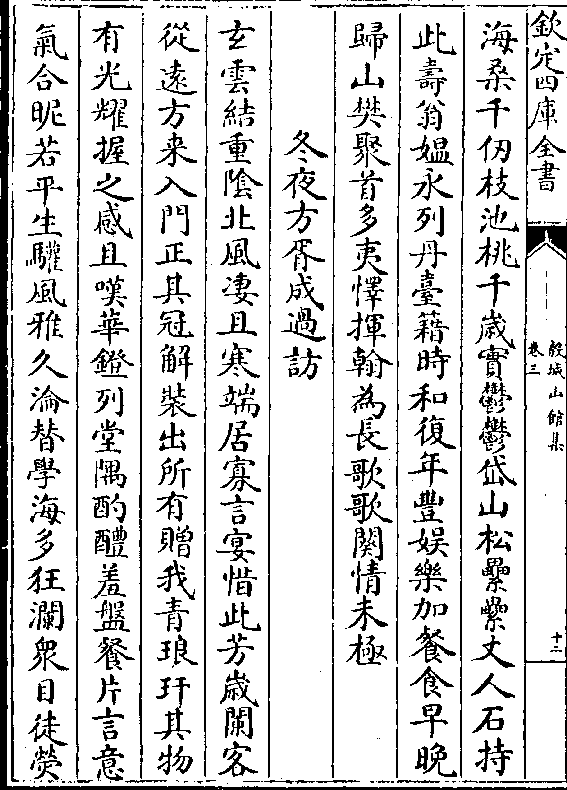 欽定四庫全書
榖城山館集
卷三
十二
海桑千仞枝池桃千歲實鬱鬱岱山松纍纍丈人石持
此壽翁媪永列丹臺籍時和復年豐娱樂加餐食早晩
歸山樊聚首多夷懌揮翰為長歌歌闋情未極
冬夜方胥成過訪
𤣥雲結重隂北風凄且寒端居寡言宴惜此芳歲闌客
從遠方来入門正其冠解裝出所有贈我青琅玕其物
有光耀握之感且嘆華鐙列堂隅酌醴羞盤餐片言意
氣合昵若平生驩風雅久淪替學海多狂瀾衆目徒熒